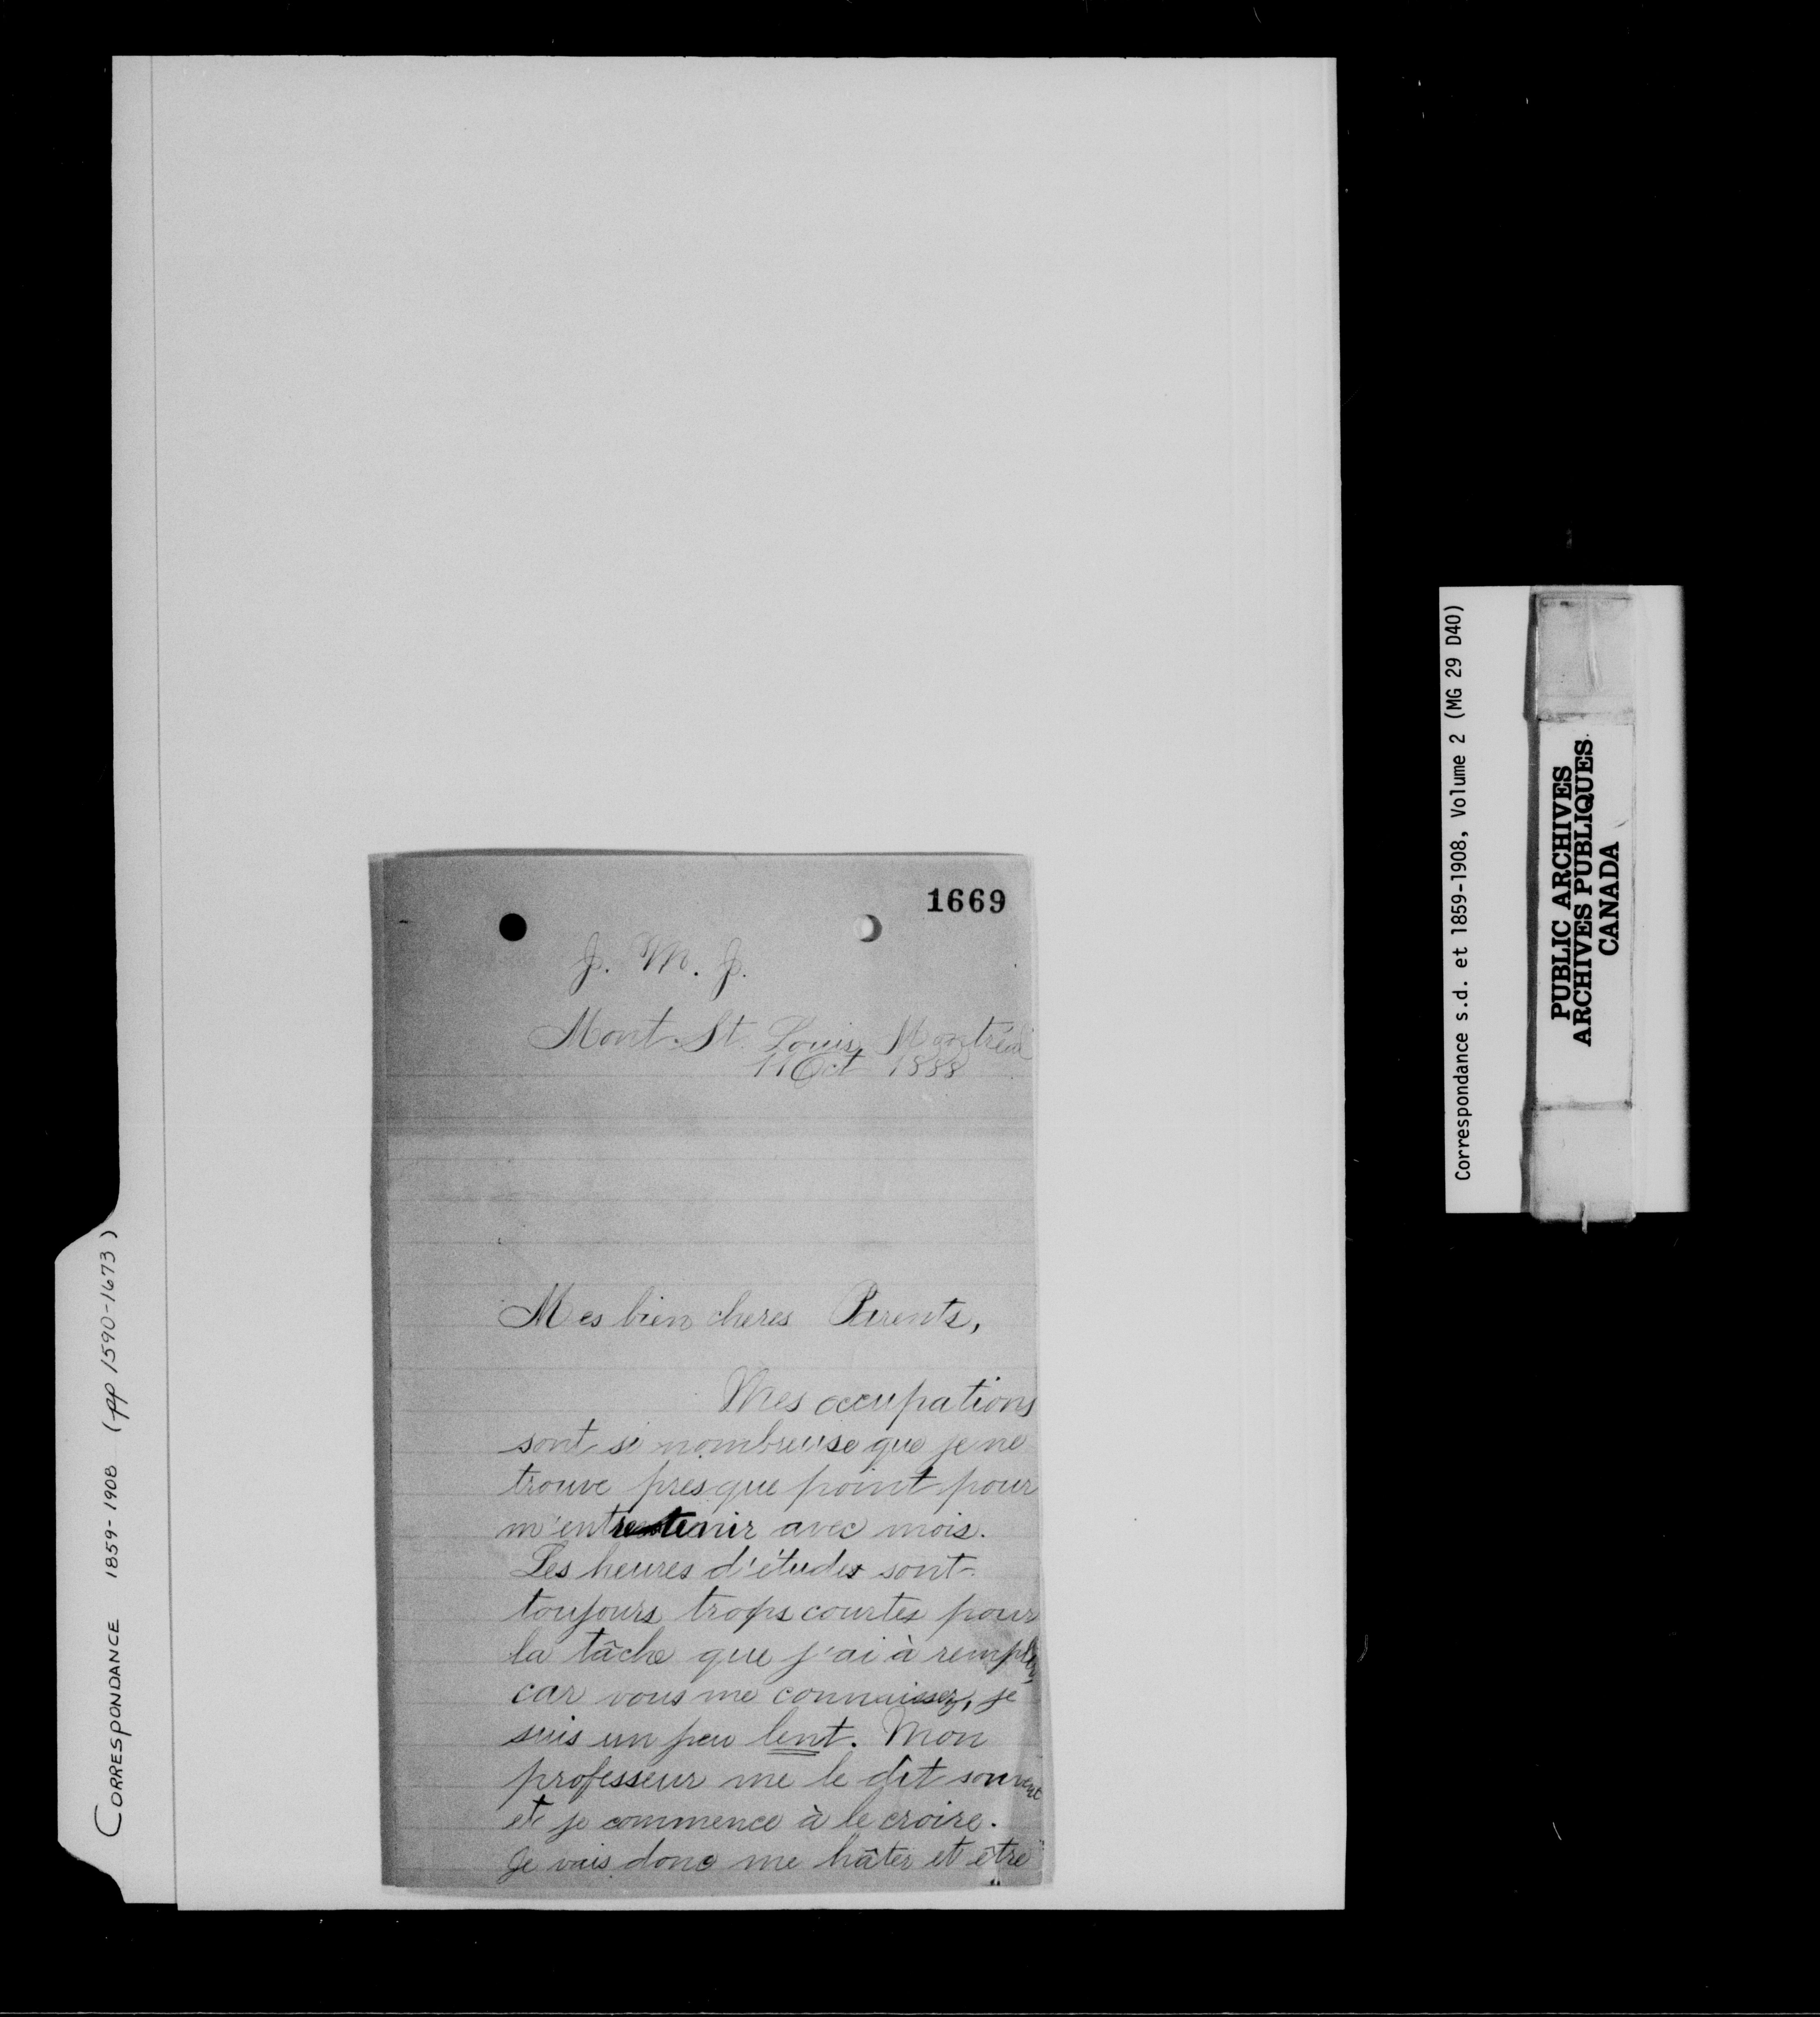 1669
J. M. J.
Mont St. Louis, Montréal
11 Oct 1888
Mes bien cheres Parents,
Mes occupations
sont si nombreuse que je ne
trouve presque point pour
m'entretenir avec mois.
Les heures d'études sont
toujours trops courtes pour
la tâche que j'ai à remplir,
car vous me connaissez, je
suis un peu lent. Mon
professeur me le dit souvent
et je commence à le croire.
Je vais donc me hâter et être
CORRESPONDANCE 1859-1908 (pp 1590-1673)
Correspondance s.d. et 1859-1908, Volume 2 (MG 29 D40)
PUBLIC ARCHIVES
ARCHIVES PUBLIQUES
CANADA